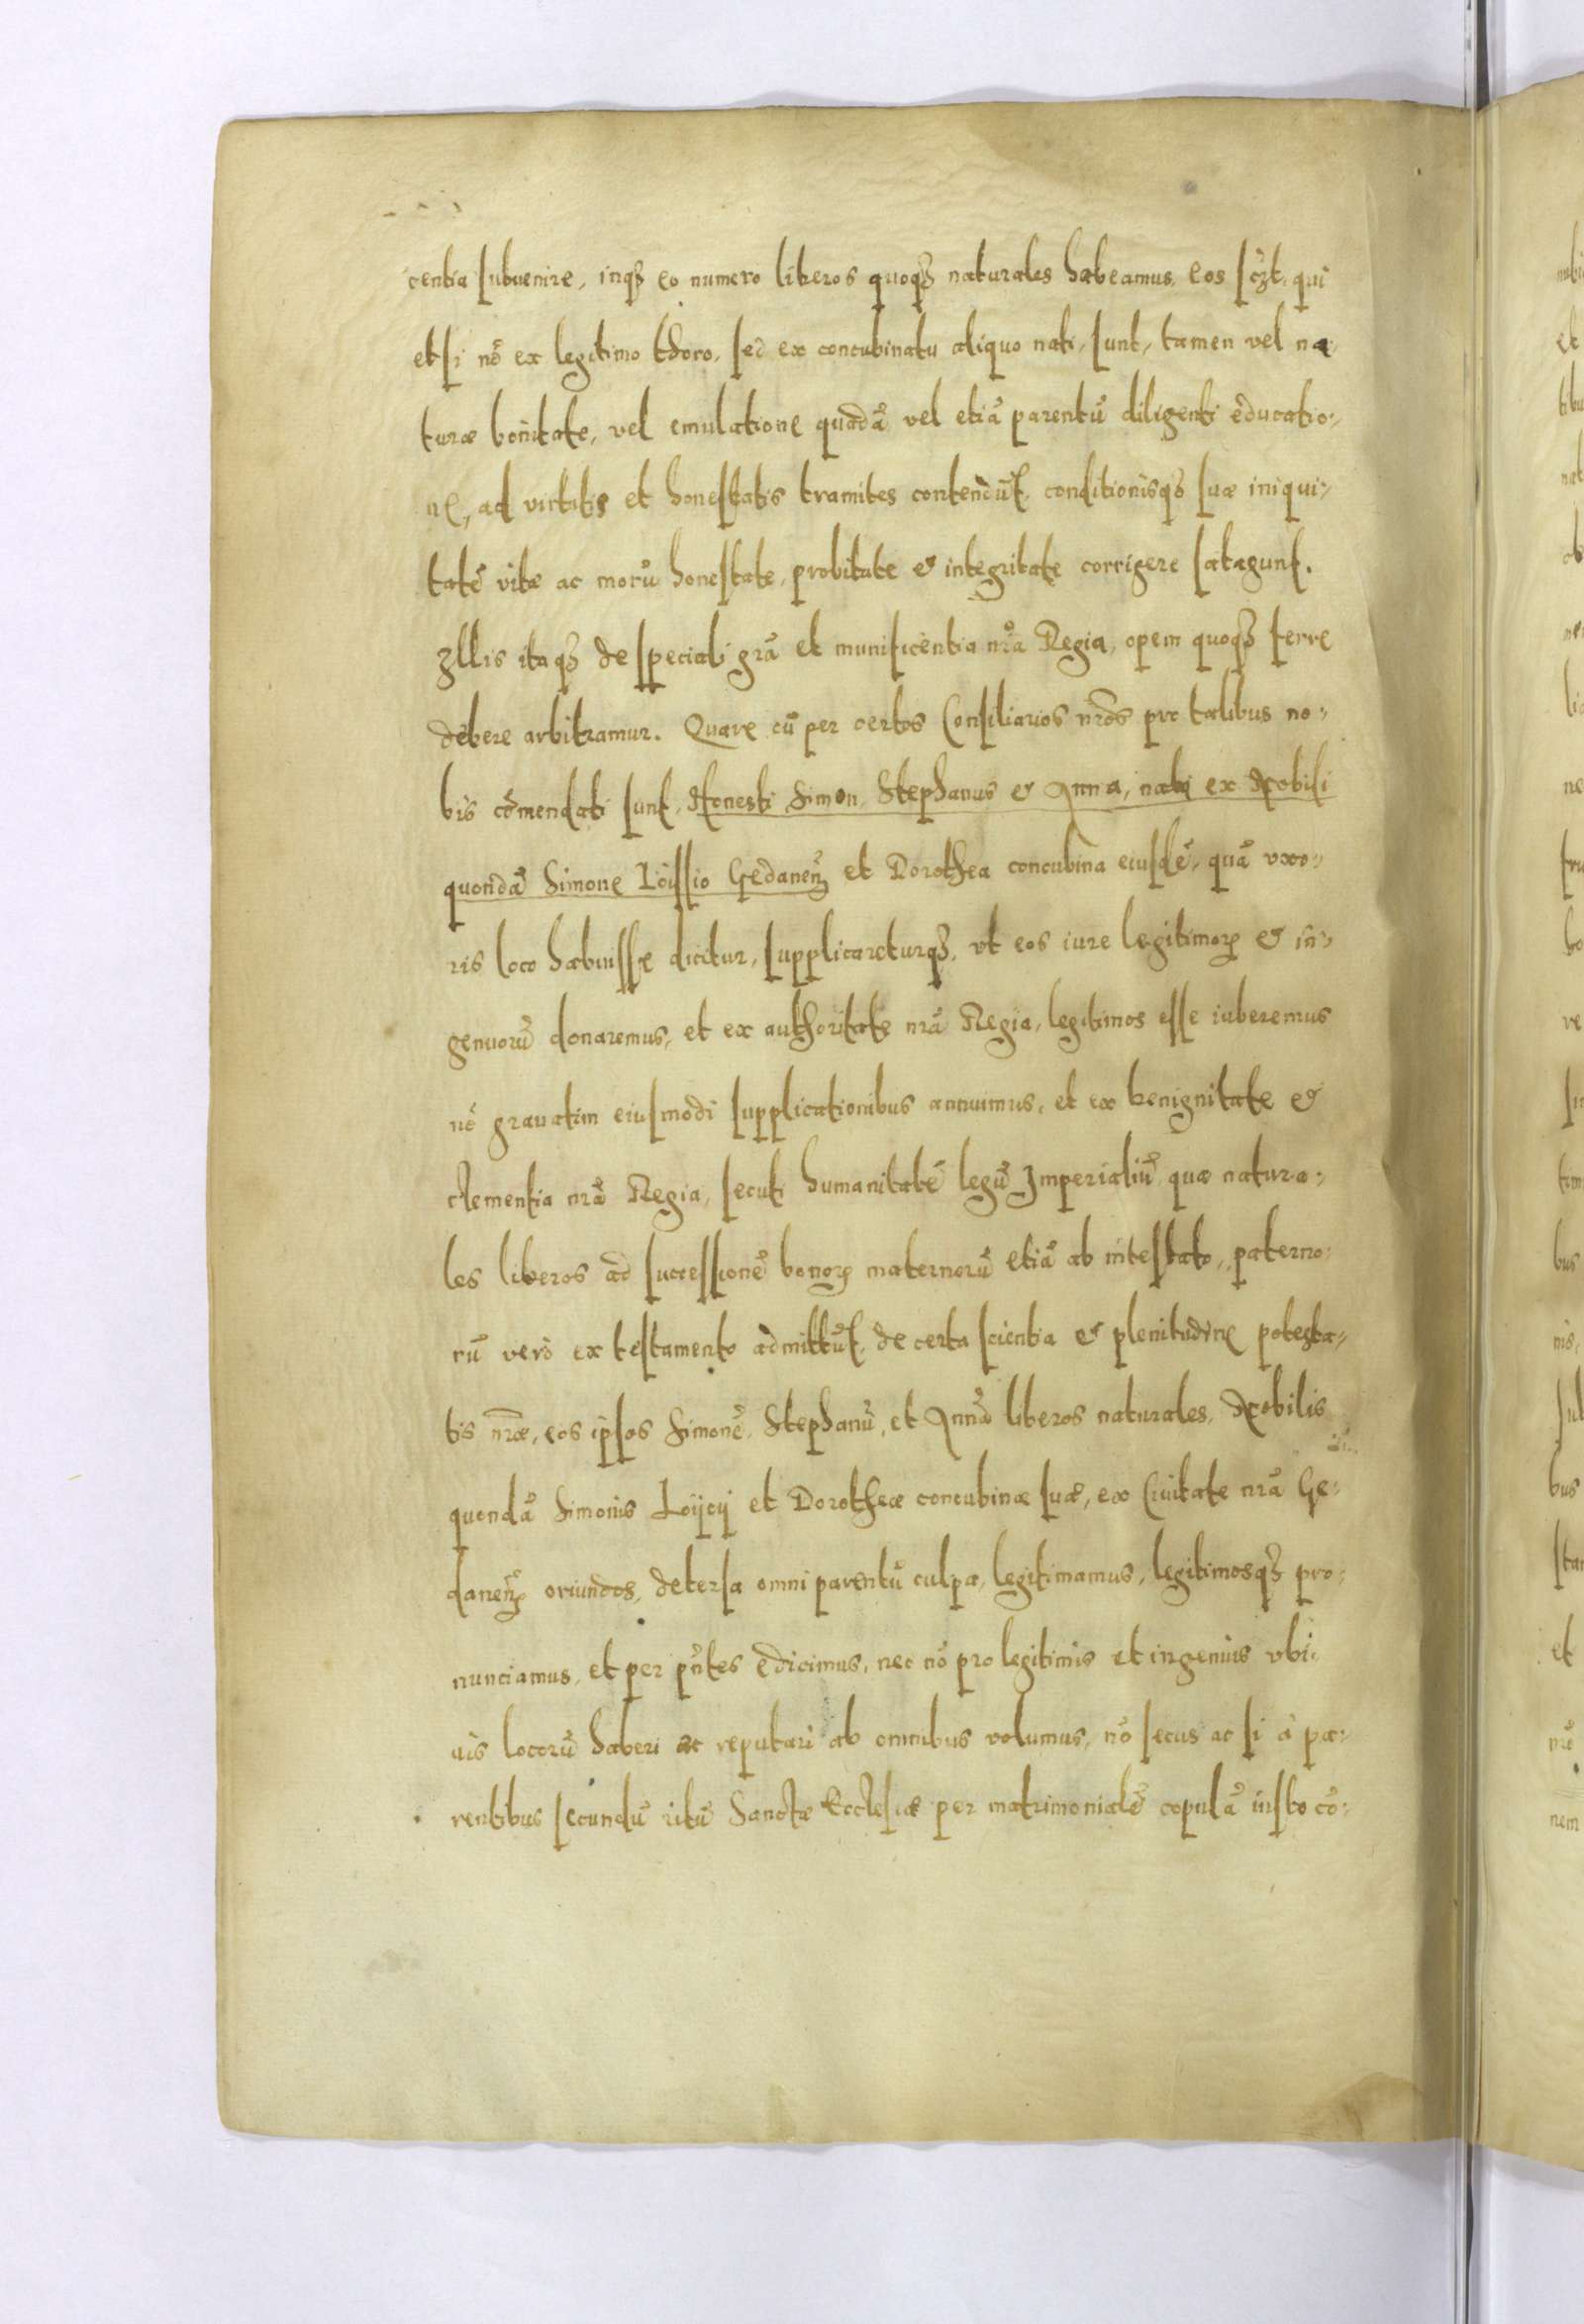 centia subuenire, inq₃ eo numero liberos quoq₃ naturales habeamus, eos sczt. qui
etsi nō ex legitimo thoro, sed ex concubinatu aliquo nati sunt, tamen vel na-
turæ bonitate, vel emulatione quadā vel etiā parentū diligenti educatio-
ne, ad virtutis et honestatis tramites contendūt, conditionisq₃ suæ iniqui-
tatē vitæ ac morū honestate, probitate & integritate corrigere satagunt.
Illis itaq₃ de speciali grā et munificentia nrā Regia, opem quoq₃ ferre
debere arbitramur. Quare cū per certos Consiliarios nrōs pro talibus no-
bis cōmendati sunt, Honesti Simon, Stephanus & Anna, nati ex Nobili
quondā Simone Loissio Gedanenꝫ et Dorothea concubina eiusdē, quā vxo-
ris loco habuisse dicitur, supplicareturq₃, vt eos iure legitimoꝝ & in-
genuorū donaremus, et ex authoritate nrā Regia, legitimos esse iuberemus
nō grauatim eiusmodi supplicationibus annuimus, et ex benignitate &
clementia nrā Regia, secuti humanitatē legū Imperialiū quæ natura-
les liberos ad successionē bonoꝝ maternorū etiā ab intestato, paterno-
rū verò ex testamento admittūt, de certa scientia & plenitudine potesta-
tis nrāe, eos ipsos Simonē, Stephanū, et Annā liberos naturales, Nobilis
quondā Simonis Loijcij et Dorotheæ concubinæ suæ, ex Ciuitate nrā Ge-
danenꝫ oriundos, detersa omni parentū culpa, legitimamus, legitimosq₃ pro-
nunciamus, et per pn̄tes edicimus, nec nō pro legitimis et ingenuis vbi-
uis locorū haberi ac reputari ab omnibus volumus, nō secus ac si à pa-
rentibus secundū ritū Sanctæ Ecclesiæ per matrimonialē copulā iusto cō-